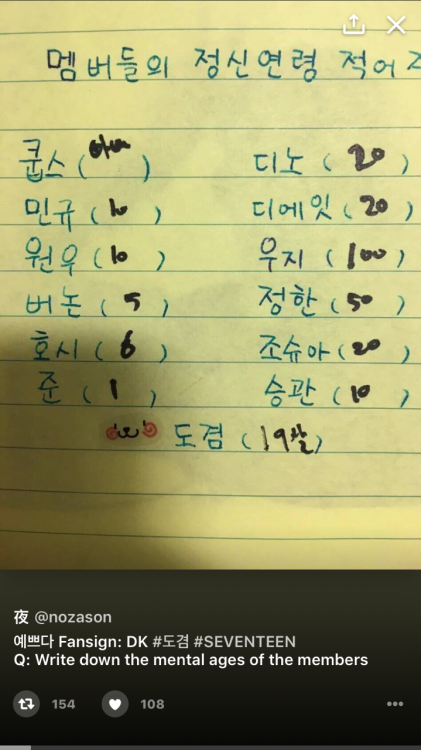 멤버들의 정신연령 적어
쿱스 ( 아빠 ) 디노 ( 20 )
민규 ( 10 ) 디에잇 ( 20 )
원우 ( 10 ) 우지 ( 100 )
버논 ( 5 ) 정한 ( 50 )
호시 ( 6 ) 조슈아 ( 20 )
준 ( 1 ) 승관 ( 10 )
도겸 ( 19살 )
夜 @nozason
예쁘다 Fansign: DK #도겸 #SEVENTEEN
Q: Write down the mental ages of the members
154 108